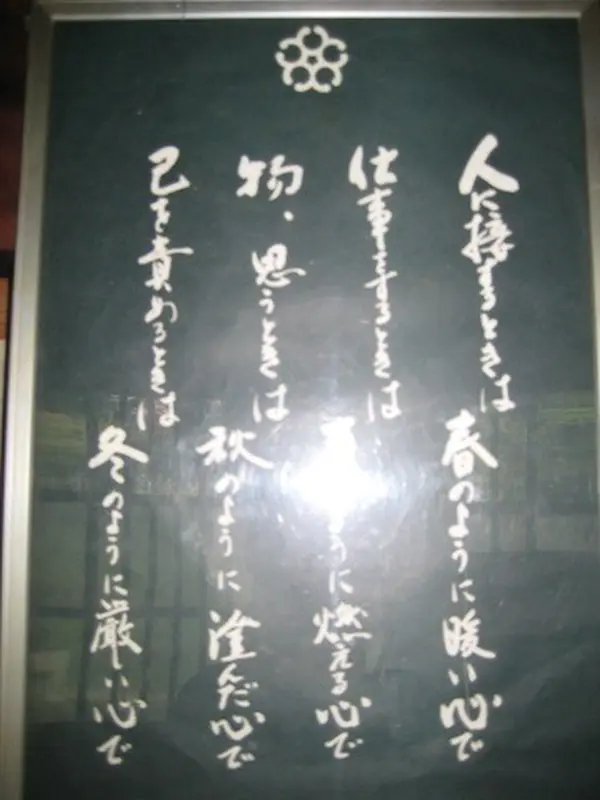 人に接するときは
春のように暖い心で
仕事をするときは
夏 うに燃える心で
物、思うときは
秋のように澄んだ心で
己を責めるときは
冬のように厳しい心で